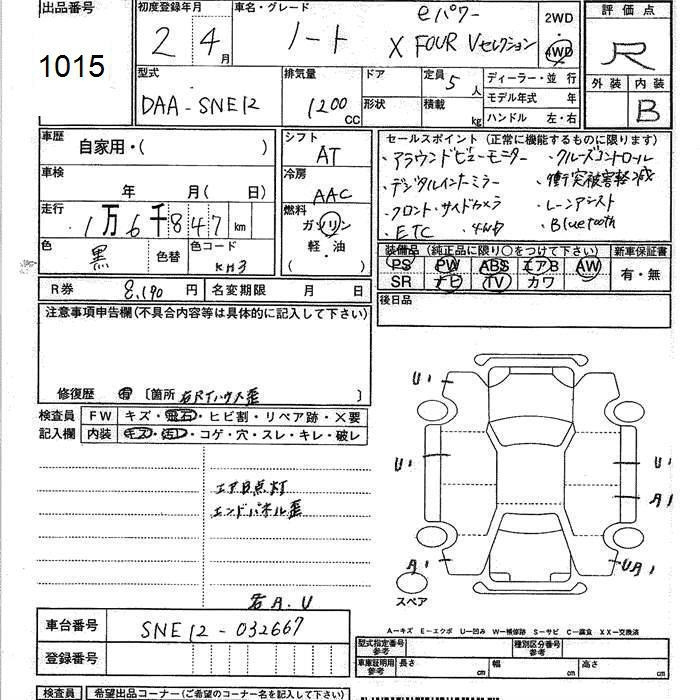 出品番号
1015
初度登録年月
2 4月
車名・グレード
ノート
eパワー
X FOUR Vセレクション
2WD
4WD
評価点
R
外装 内装
B
型式
DAA-SNE12
排気量
1200 CC
ドア
形状
定員 5 人
積載 kg
ディーラー・並 行
モデル年式 年
ハンドル 左・右
車歴
自家用・( )
車検
年 月( 日)
走行
1万6千847km
色
黒
色替
色コード
KH3
シフト
AT
冷房
AAC
燃料
ガソリン
軽・油
( )
セールスポイント (正常に機能するものに限ります)
・アラウンドビューモニター ・クルーズコントロール
・デジタルインナーミラー ・衝突被害軽減
・フロント・サイドカメラ ・レーンアシスト
・ETC ・4WD ・Bluetooth
装備品 (純正品に限り○をつけて下さい)
PS PW ABS エアB AW
SR ナビ TV カワ
新車保証書
有・無
R券 8,190 円
名変期限 月 日
後日品
注意事項申告欄(不具合内容等は具体的に記入して下さい)
修復歴 有 〔箇所 右Rタイハウス歪 〕
検査員
記入欄
FW キズ・飛石・ヒビ割・リペア跡・×要
内装 キズ・汚レ・コゲ・穴・スレ・キレ・破レ
エアB点灯
エンドパネル歪
右A.U
U1
U1
U1
A1
A1
UA1
スペア
車台番号
SNE12-032667
登録番号
A-キズ E-エクボ U-凹み W-補修跡 S-サビ C-腐食 XX-交換済
型式指定番号
参考
種別区分番号
参考
車庫証明用
参考
長さ cm 幅 cm 高さ cm
検査員
希望出品コーナー(ご希望のコーナー名を記入して下さい)